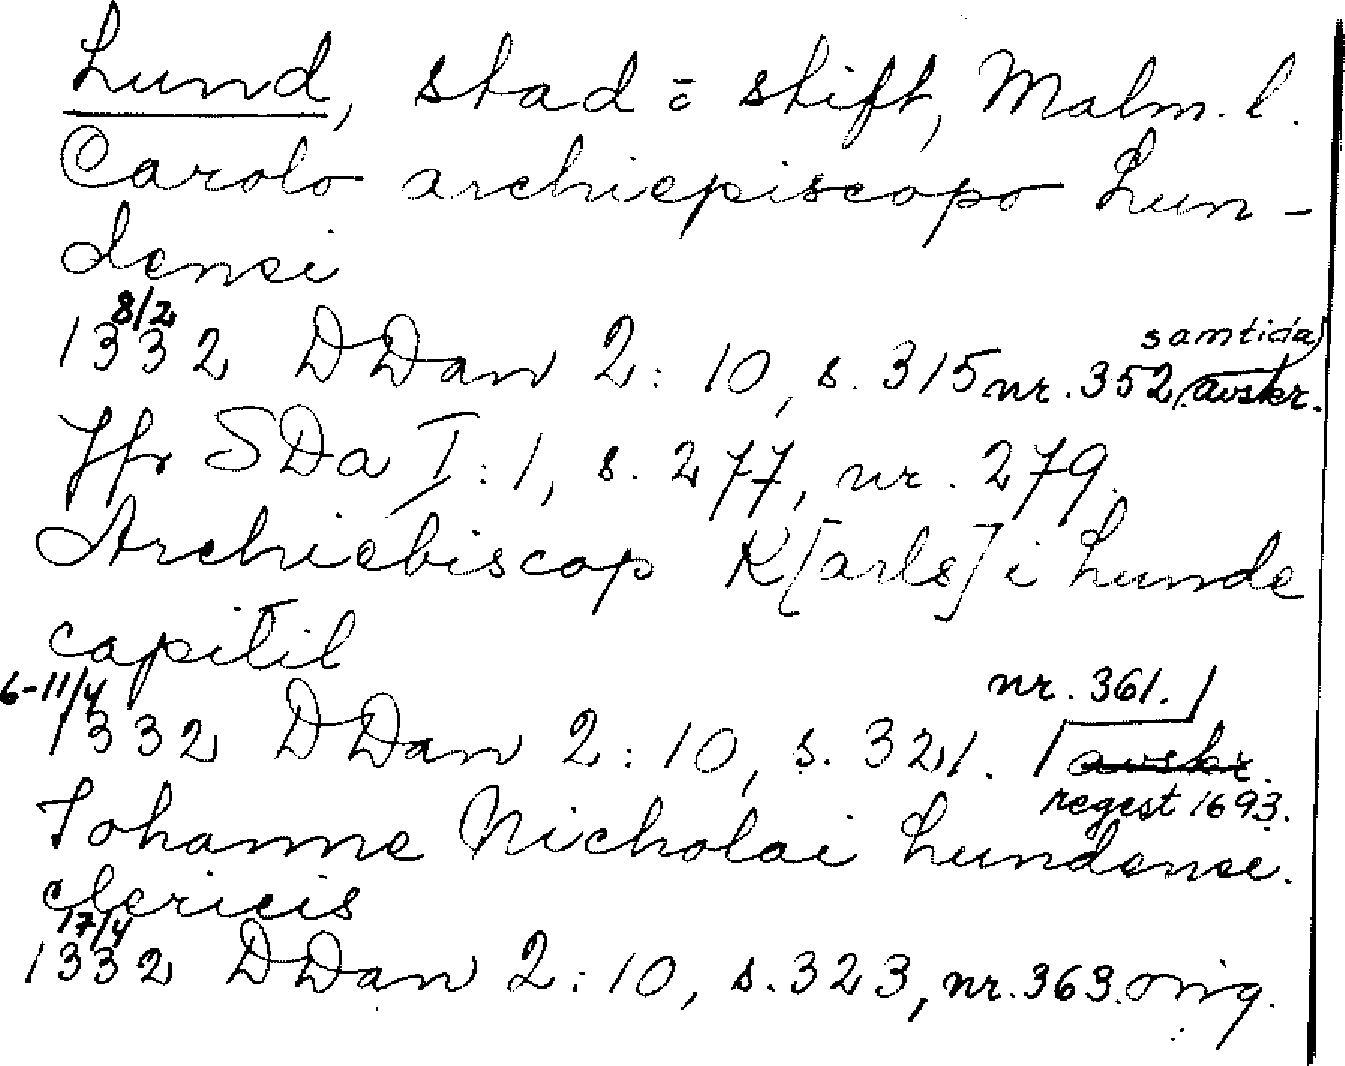 Lund, stad o stift, Malm. l.
Carolo archiepiscopo Lun-
densi
8/2
1332 DDan 2:10, s. 315 nr. 352, samtida avskr.
Jfr SDa I:1, s. 277, nr. 279.
Archiebiscop K[arls] i Lunde
capitil
6-11/4
1332 DDan 2:10, s. 321. nr. 361. avskr.
regest 1693.
Johanne Nicholai Lundense.
clericis
17/4
1332 DDan 2:10, s. 323, nr. 363. orig.